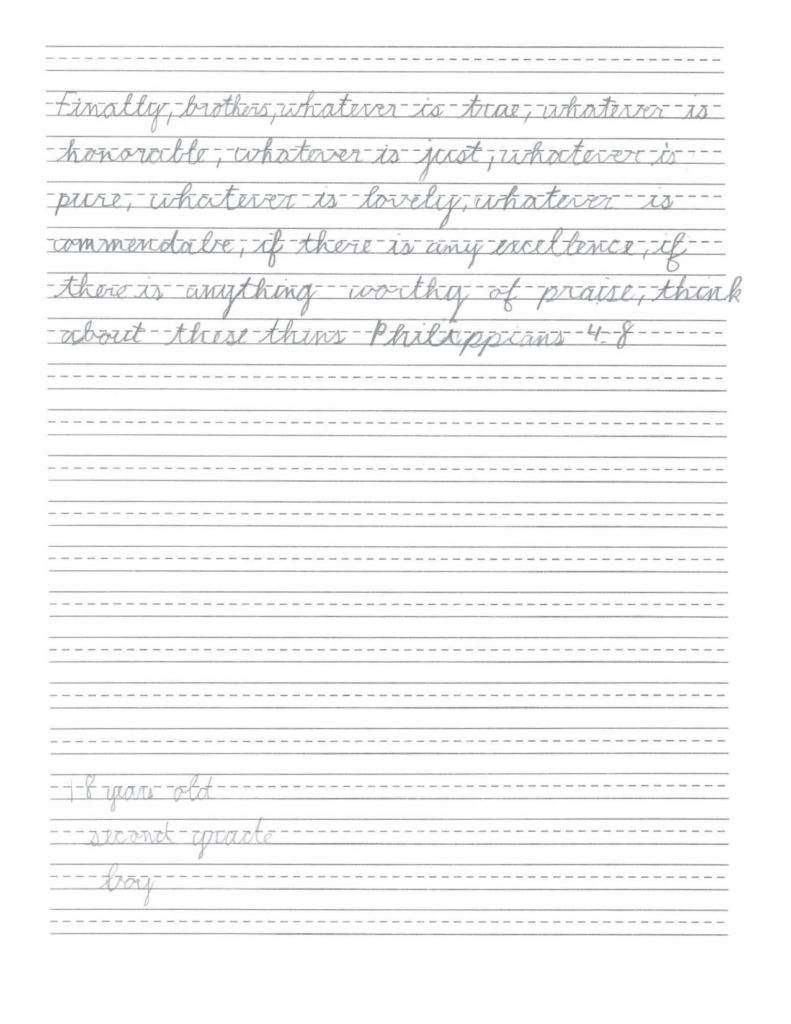 Finally, brothers, whatever is true, whatever is
honorable, whatever is just, whatever is
pure, whatever is lovely, whatever is
commendalre, if there is any excellence, if
there is anything worthy of praise, think
about these thins Philippians 4-8
8 years old
second grade
boy